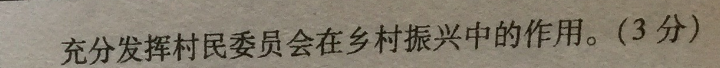 充分发挥村民委员会在乡村振兴中的作用。(3 分)